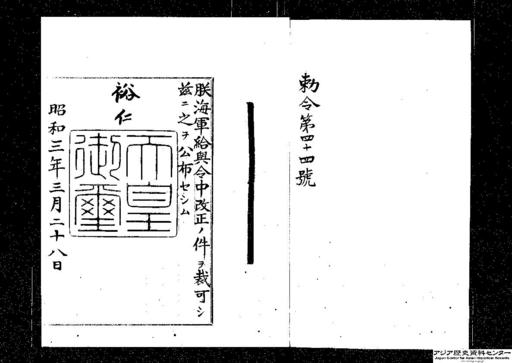 勅令第四十四號
朕海軍給與令中改正ノ件ヲ裁可シ
茲ニ之ヲ公布セシム
裕仁
天皇
御璽
昭和三年三月二十八日
アジア歴史資料センター
Japan Center for Asian Historical Records